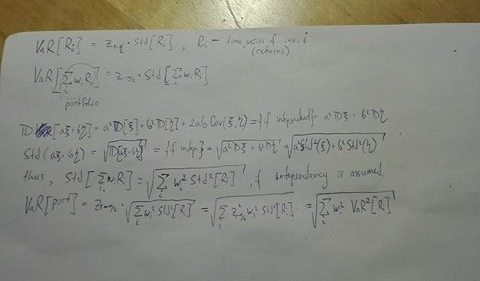 VaR[Ri] = z1-α · Std[Ri], Ri - time series of inv. i
(returns)
VaR[∑i wi Ri] = z1-α/2 · Std[∑i wi Ri]
portfolio
D[aξ + bη] = a²D[ξ] + b²D[η] + 2ab Cov(ξ, η) = {if independent} = a²Dξ + b²Dη
Std(aξ + bη) = √D[aξ + bη] = {if indep} = √a²Dξ + b²Dη = √a²Std²(ξ) + b²Std²(η)
thus, Std[∑i wi Ri] = √∑i wi² Std²[Ri], if independency is assumed
VaR[port] = z1-α/2 · √∑i wi² Std²[Ri] = √∑i z²1-α/2 wi² Std²[Ri] = √∑i wi² VaR²[Ri]